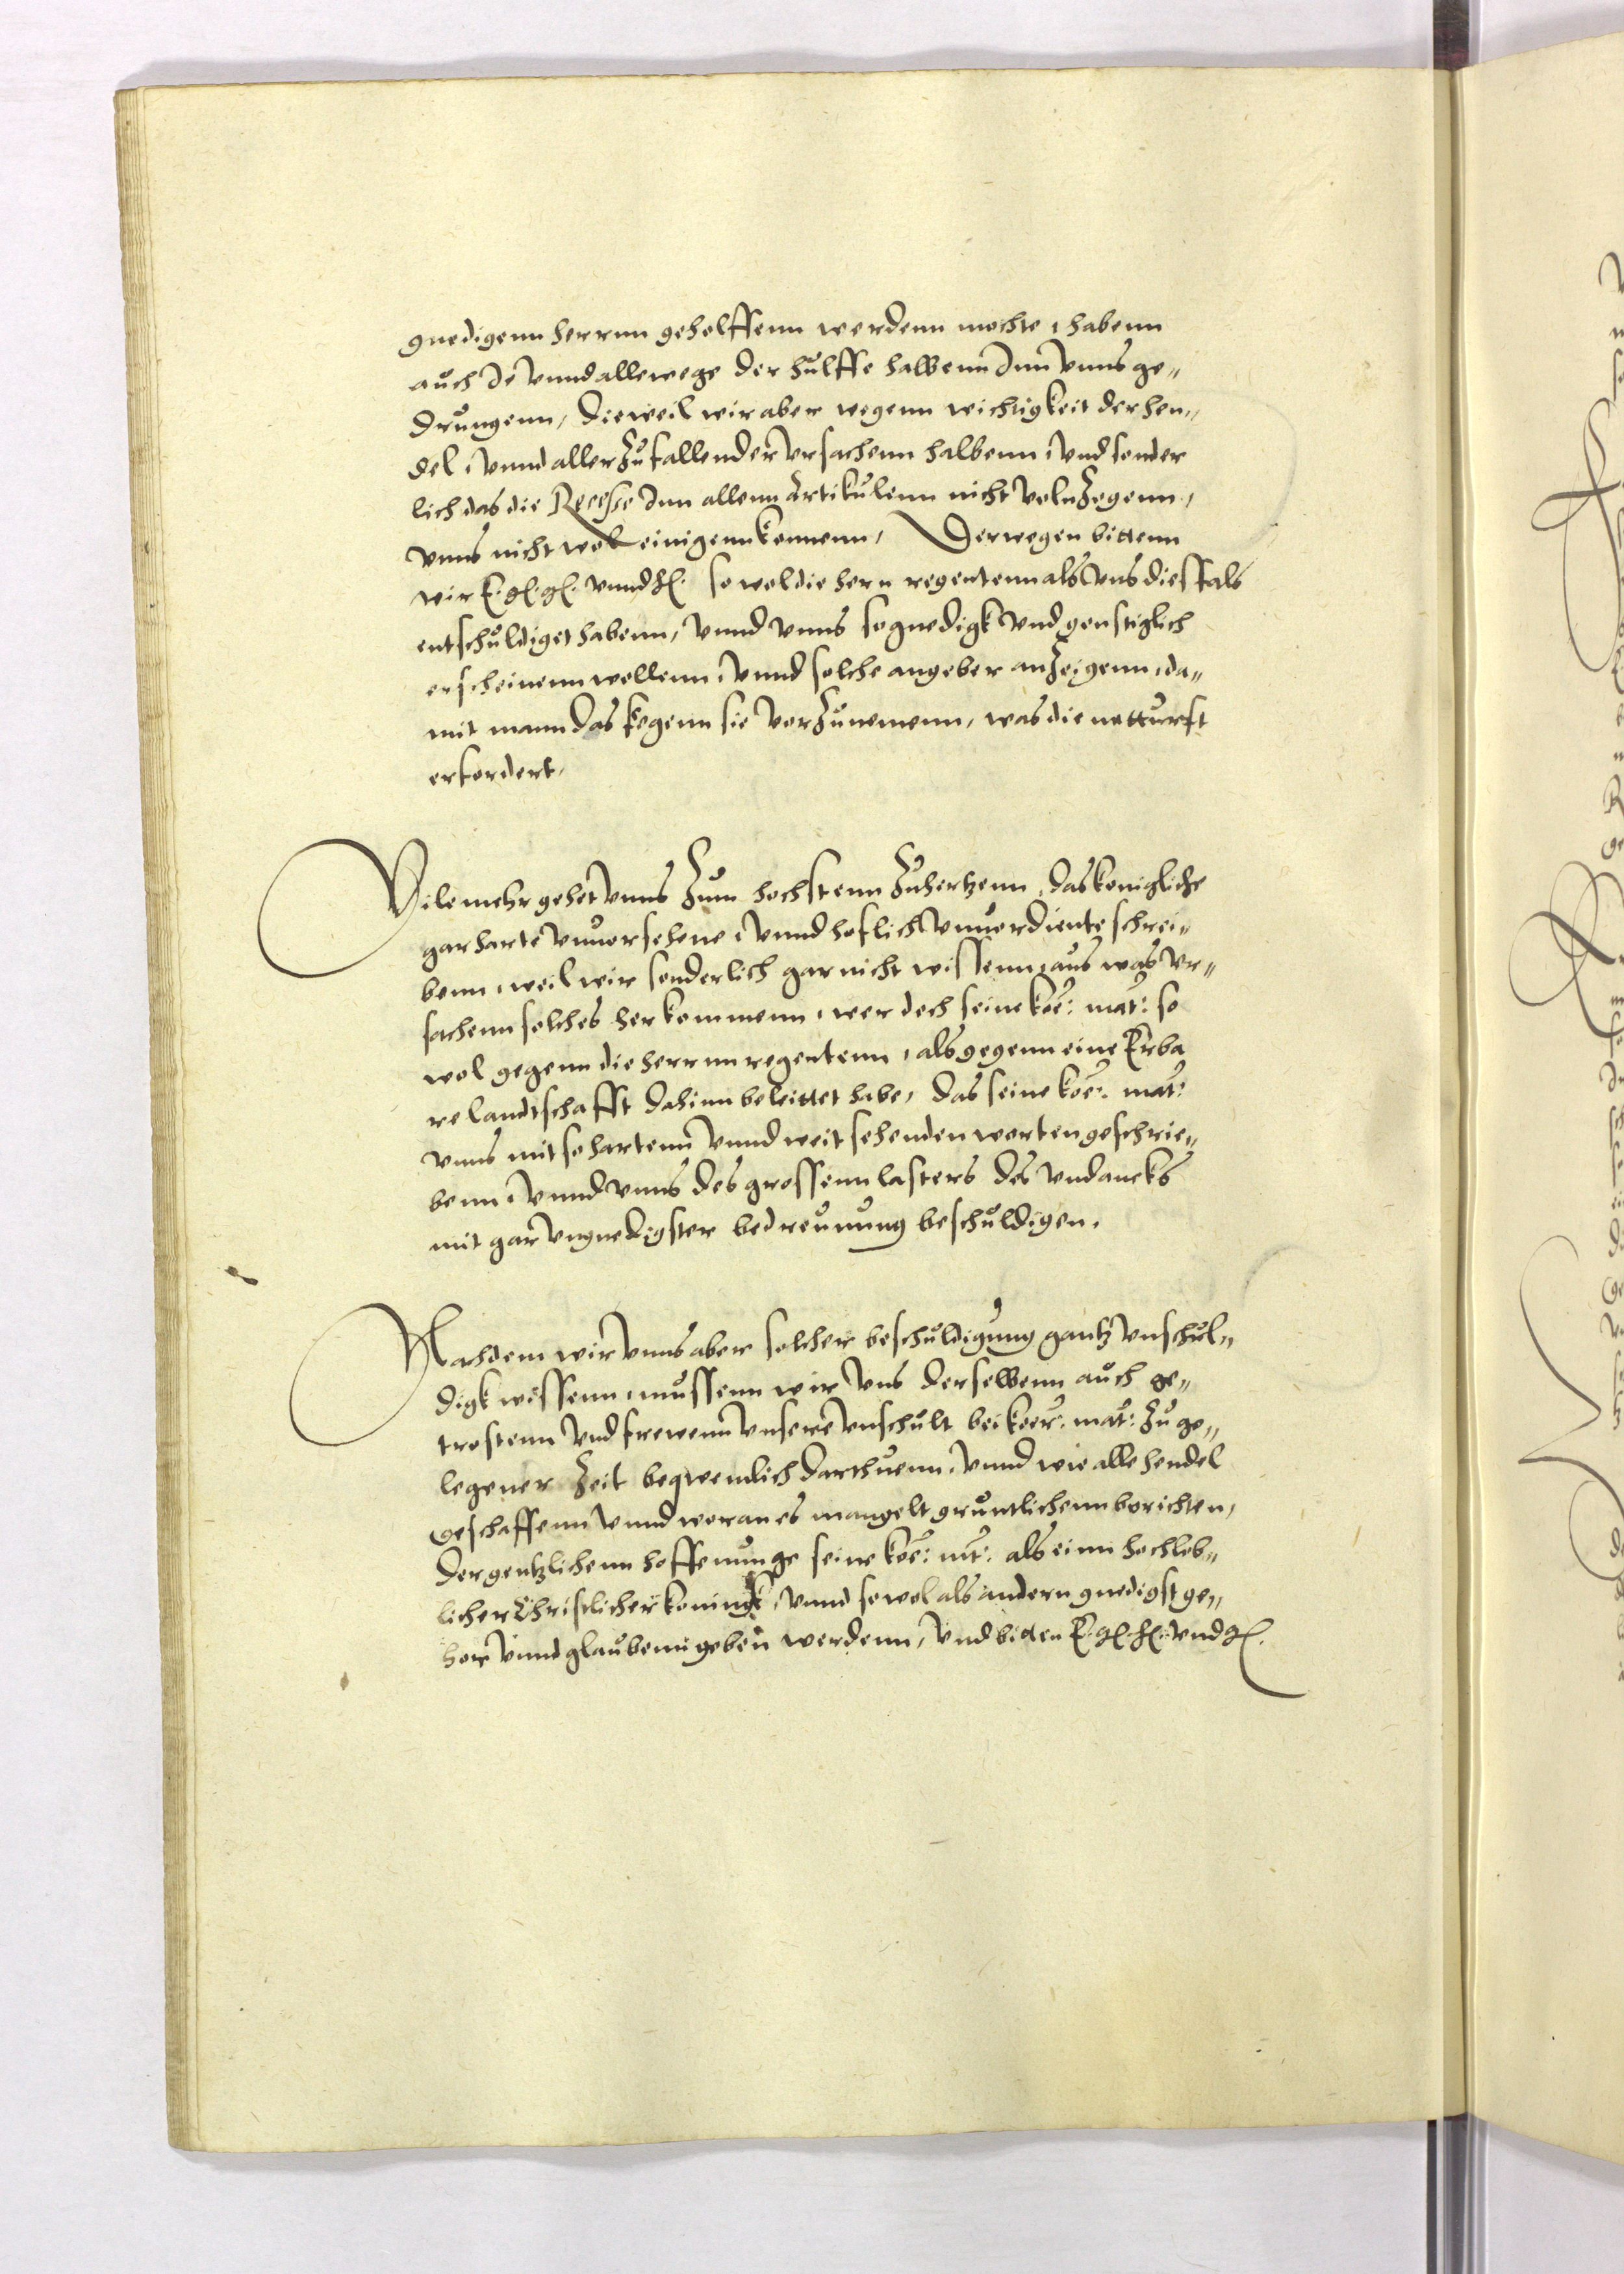 gnedigenn herrnn geholffenn werdenn mochte, habenn
auch Je vnnd allewege der hulffe halbenn Inn vnns ge„
drungenn, Dieweil wir aber wegenn wichtigkeit der hen„
del, vnnd aller zufallender vrsachenn halbenn, vnd sonder
lich das die Recesse Inn allenn Artikulenn nicht voln zogenn,
vnns nicht wol einigenn konnenn, Derwegen bittenn
wir E. g. g. vnnd h. so wol die hern regentenn als vns diesfals
entschuldiget habenn, vnnd vnns so gnedigk vnd gonstiglich
erscheinenn wollenn, vnnd solche angeber anzeigenn, da„
mit mann das kegenn sie vorzunemenn, was die notturft
erfordert,
Vile mehr gehet vnns zum hochstenn zu hertzenn, das konigliche
gar harte vnuorsehene, vnnd hoflich vnuordiente schrei„
benn, weil wir sonderlich gar nicht wissenn, aus was vr„
sachenn solches her kommenn, wer doch seine koe: mat: so
wol gegenn die herrnn regentenn, als gegenn eine Erba
re landtschafft dahinn beleittet habe, das seine koe: mat:
vnns mit so hartenn vnnd weit sehenden worten geschrie„
benn, vnnd vnns des grossenn lasters des vndancks
mit gar vngnedigster bedreuung beschuldigen.
Nachdem wir vnns aber solcher beschuldigung gantz vnschul„
digk wissenn, mussenn wir vns derselbenn auch ge„
trostenn vnd frewenn vnsere vnschult bei koer: mat: zu ge„
legener zeit beqwemlich darthuenn, vnnd wie alle hendel
geschaffenn vnnd woran es mangelt gruntlichenn borichten,
der gentzlichenn hoffenunge seine koe: mt: als einn hochlob„
licher Christlicher koningk, vnnd so wol als andern gnedigst ge„
hor vnnd glaubenn geben werdenn, vnd bitten E. g. h. vnd g.